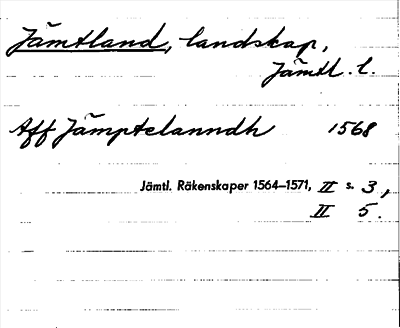 Jämtland, landskap,
Jämtl. l.
Aff Jämptelanndh 1568
Jämtl. Räkenskaper 1564–1571, II s. 3,
II 5.